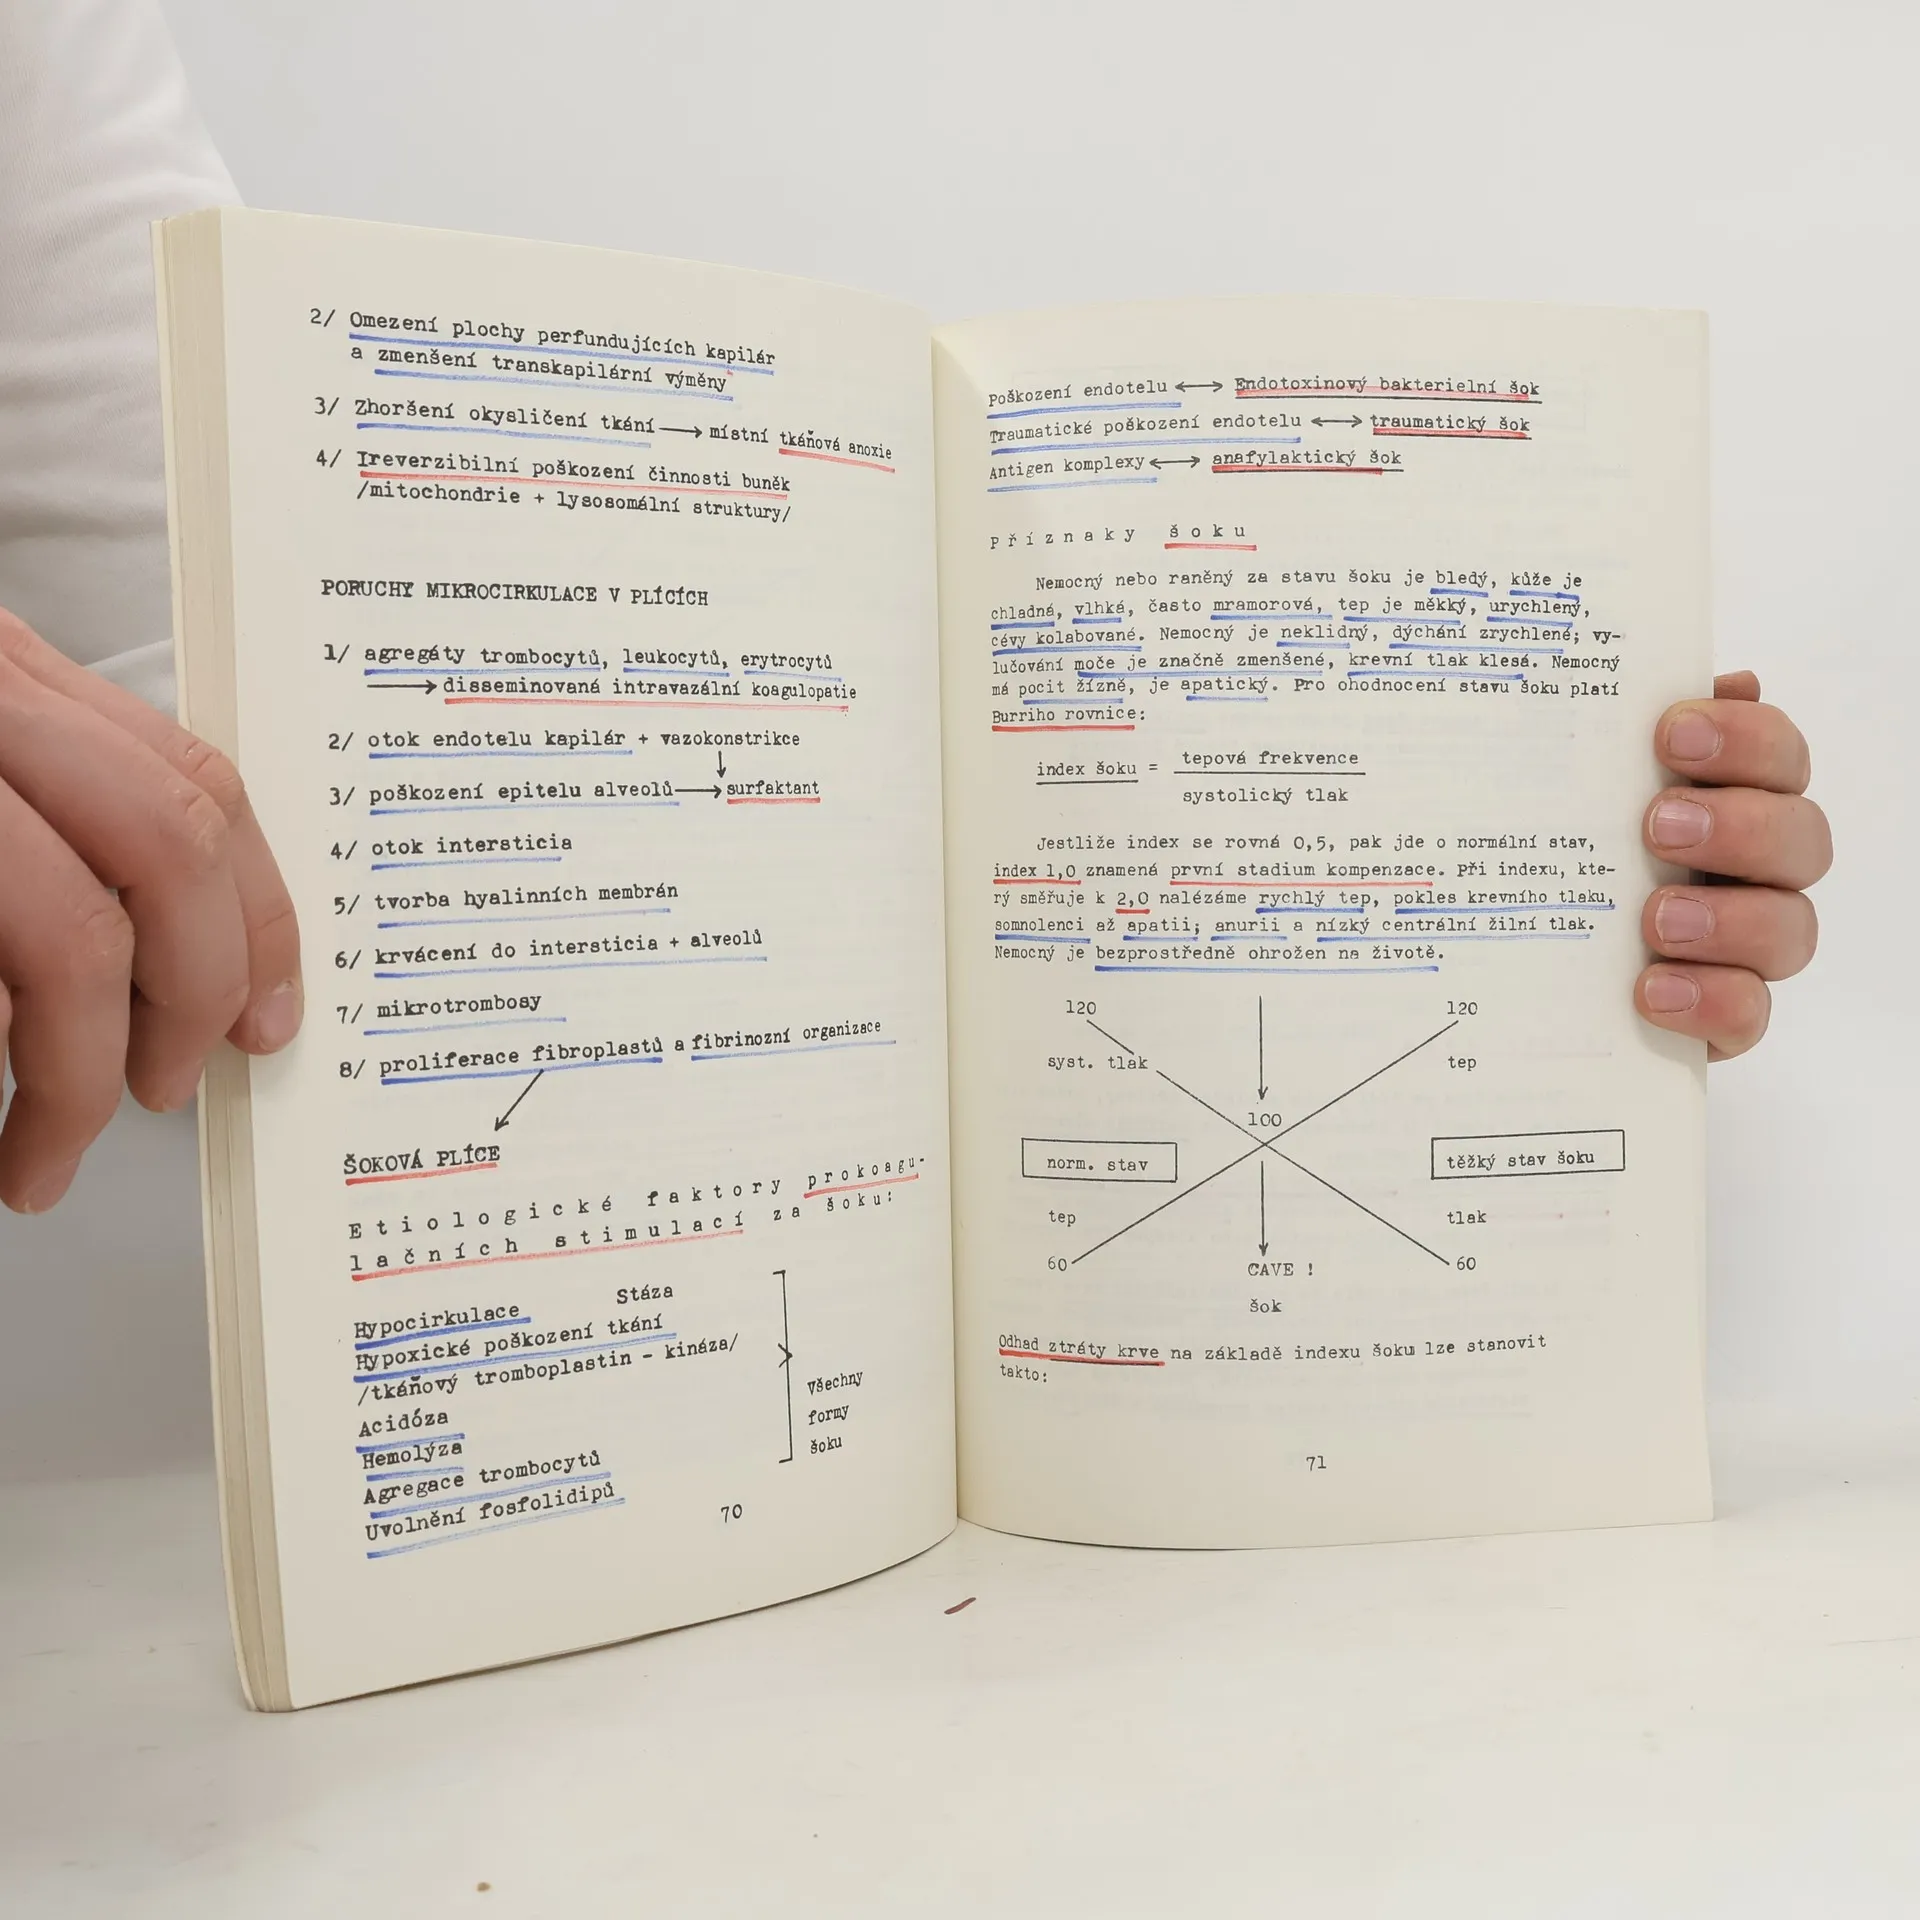 2/ Omezení plochy perfundujících kapilár
a zmenšení transkapilární výměny
3/ Zhoršení okysličení tkání → místní tkáňová anoxie
4/ Ireverzibilní poškození činnosti buněk
/mitochondrie + lysosomální struktury/
PORUCHY MIKROCIRKULACE V PLÍCÍCH
1/ agregáty trombocytů, leukocytů, erytrocytů
→ disseminovaná intravazální koagulopatie
2/ otok endotelu kapilár + vazokonstrikce
↓
3/ poškození epitelu alveolů → surfaktant
4/ otok intersticia
5/ tvorba hyalinních membrán
6/ krvácení do intersticia + alveolů
7/ mikrotrombosy
8/ proliferace fibroplastů a fibrinozní organizace
ŠOKOVÁ PLÍCE
Etiologické faktory prokoagu-
lačních stimulací za šoku:
Hypocirkulace Stáza
Hypoxické poškození tkání
/tkáňový tromboplastin - kináza/
Acidóza
Hemolýza
Agregace trombocytů
Uvolnění fosfolidipů
Všechny
formy
šoku
70
Poškození endotelu ↔ Endotoxinový bakterielní šok
Traumatické poškození endotelu ↔ traumatický šok
Antigen komplexy ↔ anafylaktický šok
Příznaky šoku
Nemocný nebo raněný za stavu šoku je bledý, kůže je
chladná, vlhká, často mramorová, tep je měkký, urychlený,
cévy kolabované. Nemocný je neklidný, dýchání zrychlené; vy-
lučování moče je značně zmenšené, krevní tlak klesá. Nemocný
má pocit žízně, je apatický. Pro ohodnocení stavu šoku platí
Burriho rovnice:
index šoku = tepová frekvence
systolický tlak
Jestliže index se rovná 0,5, pak jde o normální stav,
index 1,0 znamená první stadium kompenzace. Při indexu, kte-
rý směřuje k 2,0 nalézáme rychlý tep, pokles krevního tlaku,
somnolenci až apatii; anurii a nízký centrální žilní tlak.
Nemocný je bezprostředně ohrožen na životě.
120 120
syst. tlak tep
100
norm. stav těžký stav šoku
tep tlak
60 60
CAVE !
šok
Odhad ztráty krve na základě indexu šoku lze stanovit
takto:
71